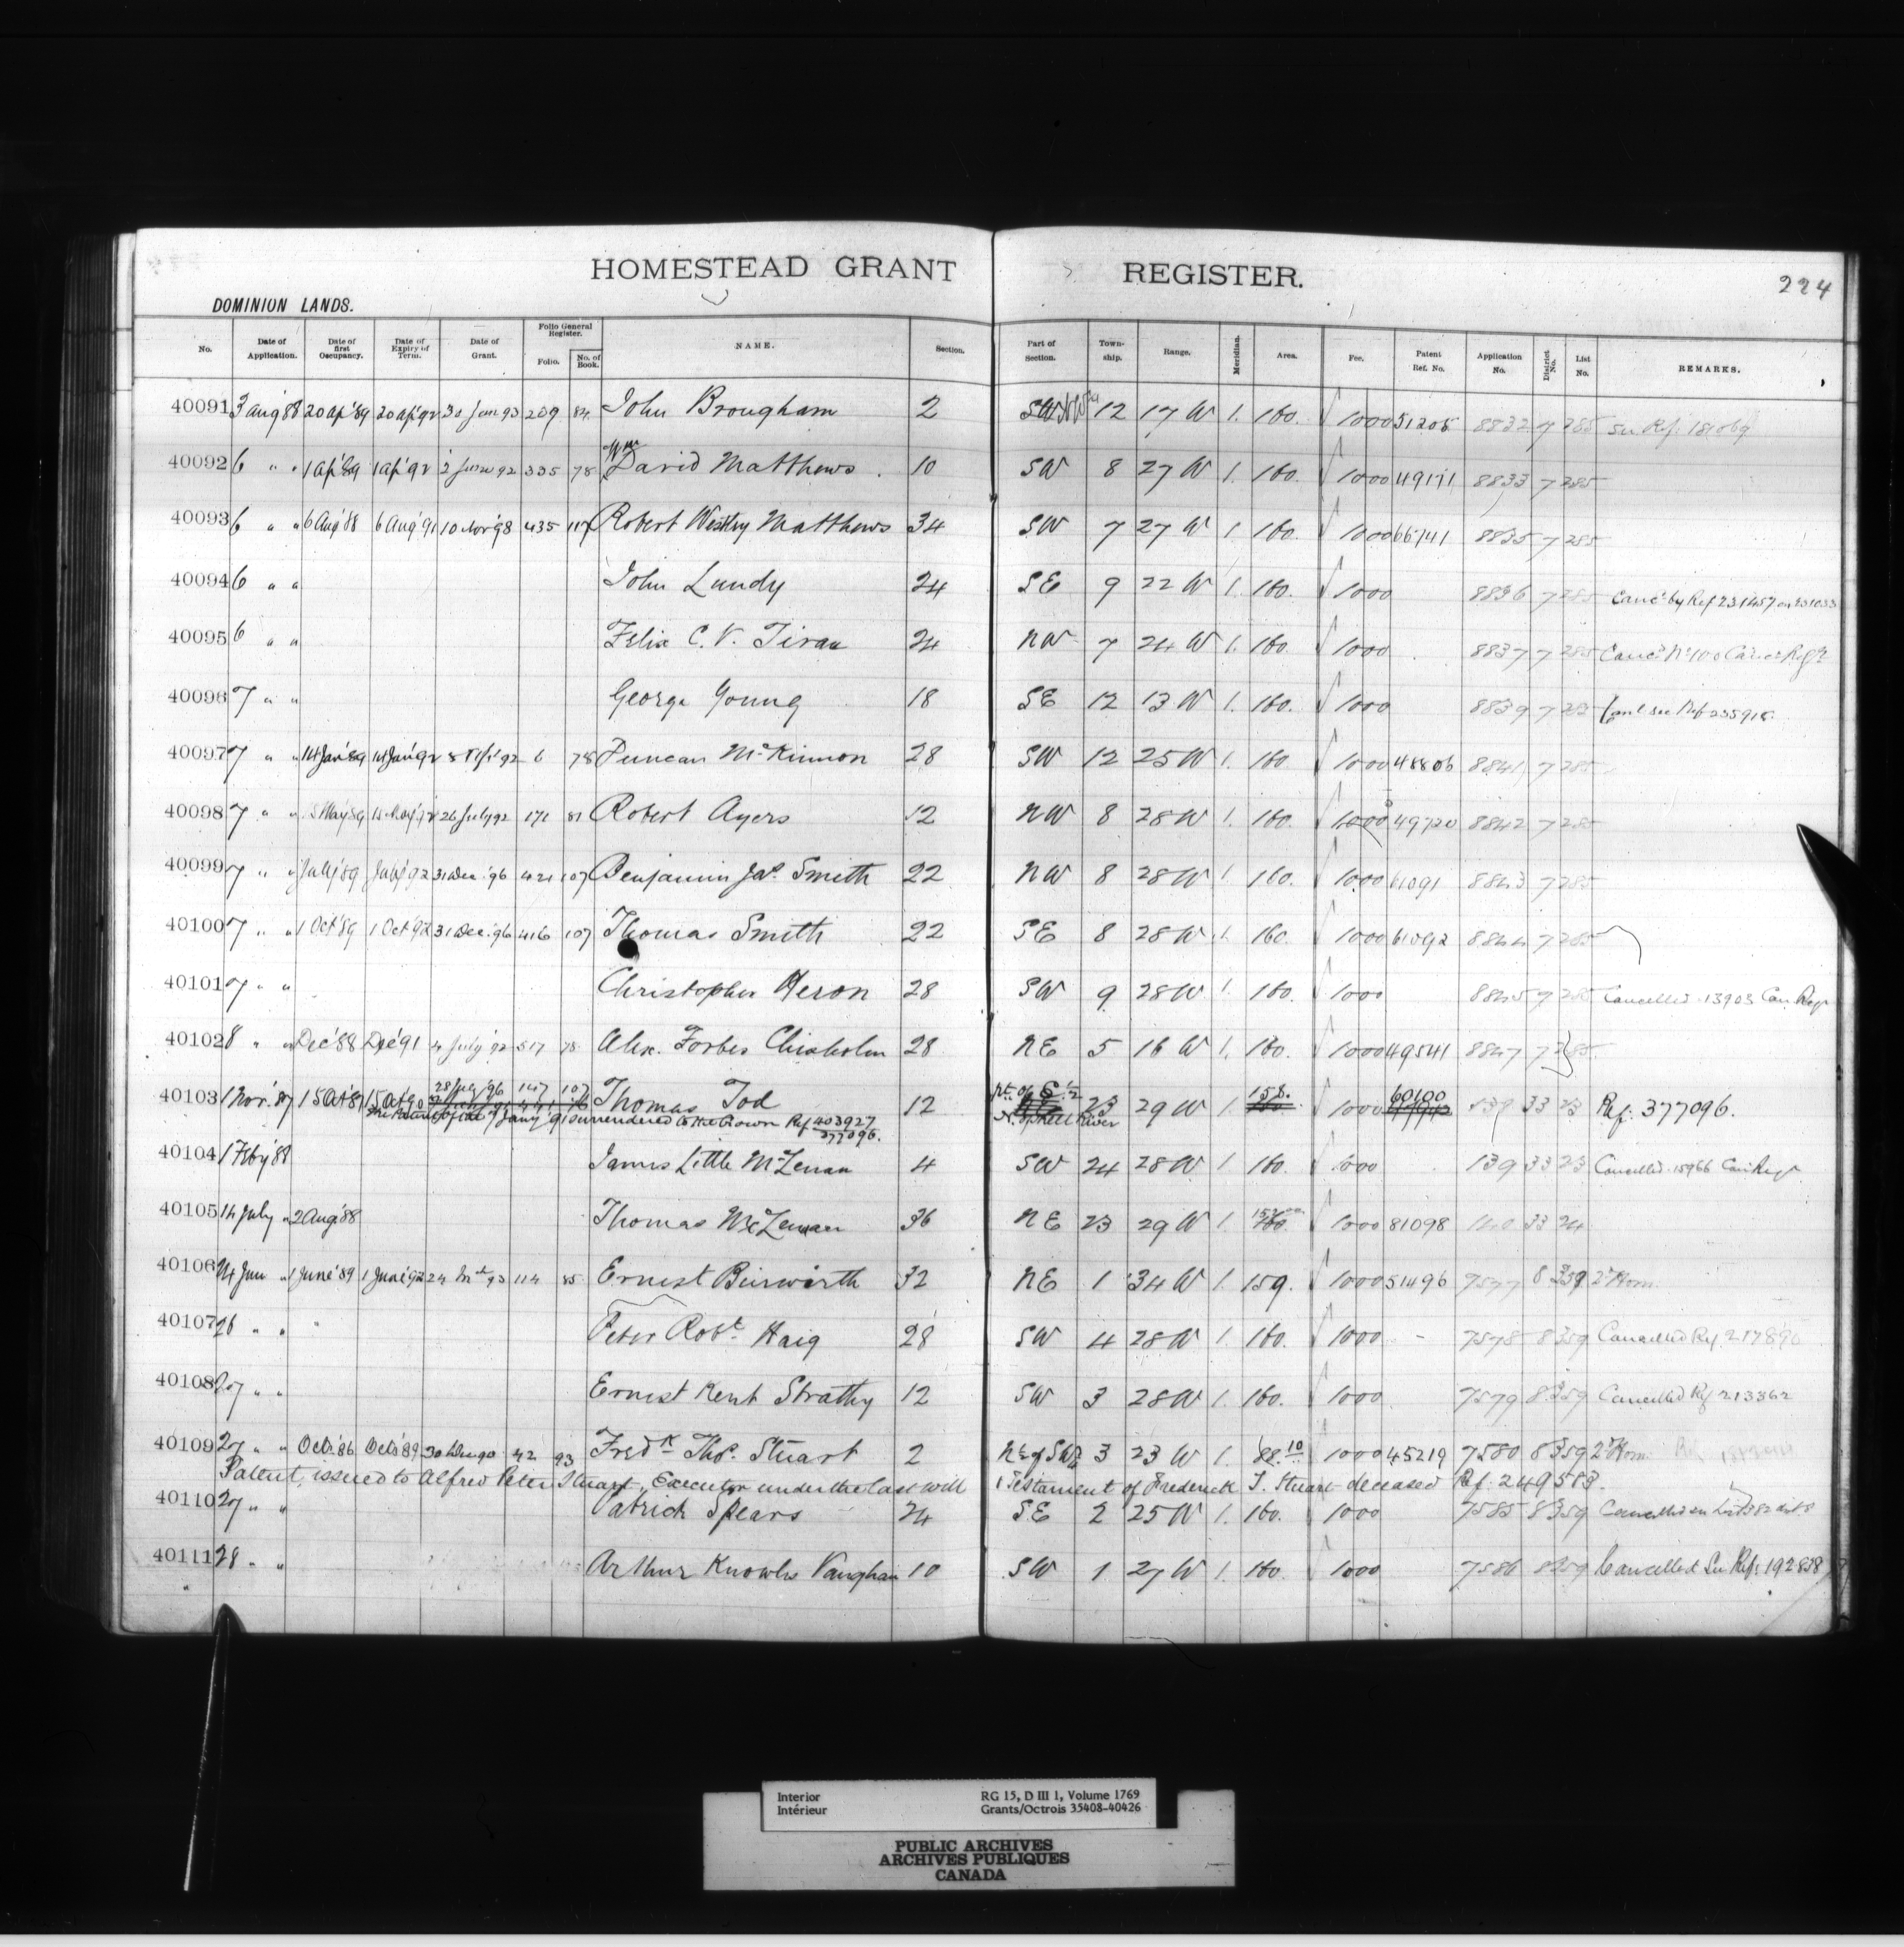 HOMESTEAD GRANT REGISTER.
224
DOMINION LANDS.
No. Date of Application. Date of first Occupancy. Date of Expiry of Term. Date of Grant. Folio General Register. Folio. No. of Book. NAME. Section. Part of Section. Township. Range. Meridian. Area. Fee. Patent Ref. No. Application No. District No. List No. REMARKS.
40091 3 Aug 88 20 Ap '89 20 Ap '92 30 Jan 93 209 84 John Brougham 2 12 17 W 1. 160. 1000 51205 8832 7 285 See Ref. 181069
40092 6 " " 1 Ap '89 1 Ap '92 2 June 92 335 78 Wm David Matthews 10 SW 8 27 W 1. 160. 1000 49171 8833 7 285
40093 6 " " 6 Aug '88 6 Aug '91 10 Nov '98 435 117 Robert Westley Matthews 34 SW 7 27 W 1. 160. 1000 66741 8835 7 285
40094 6 " " John Lundy 24 SE 9 22 W 1. 160. 1000 8836 7 285 Canc'd by Ref 231457 on 231033
40095 6 " " Felix C. V. Tiran 24 NW 7 24 W 1. 160. 1000 8837 7 285
40096 7 " " George Young 18 SE 12 13 W 1. 160. 1000 8839 7 285 Canl. see Ref 255915
40097 7 " " 14 Jan '89 14 Jan '92 6 78 Duncan McKinnon 28 SW 12 25 W 1. 160 1000 48806 8841 7 285
40098 7 " " 15 May '89 15 May '92 26 July 92 171 81 Robert Ayers 12 NW 8 28 W 1. 160. 1000 49720 8842 7 285
40099 7 " " July '89 July '92 31 Dec. '96 421 107 Benjamin Jas. Smith 22 NW 8 28 W 1 160. 1000 61091 8843 7 285
40100 7 " " 1 Oct '89 1 Oct '92 31 Dec. '96 416 107 Thomas Smith 22 SE 8 28 W 1. 160. 1000 61092 8844 7 285
40101 7 " " Christopher Heron 28 SW 9 28 W 1. 160. 1000 8845 7 285 Cancelled. 13903 Can. Regr
40102 8 " " Dec '88 Dec '91 4 July '92 517 78 Alex. Forbes Chisholm 28 NE 5 16 W 1. 160. 1000 49541 8847 7 285
40103 1 Nov. '87 15 Oct '87 15 Oct '90 28 July '96 147 107 Thomas Tod 12 Pt. of E 1/2 23 29 W 1. 158. 1000 60100 139 33 23 Ref: 377096.
The Patent of the 9 Jany '91 surrendered to the Crown Ref 403927 377096. N. of Shell River
40104 1 Feby '88 James Little McLenan 4 SW 24 28 W 1 160. 1000 139 33 23 Cancelled. 15966 Can. Regr
40105 14 July " 2 Aug '88 Thomas McLenan 36 NE 23 29 W 1. 1000 81098 140 33 24
40106 24 Jan " 1 June '89 1 June '92 93 114 85 Ernest Beirwirth 32 NE 1 34 W 1. 159. 1000 51496 7577 8 359 2d Hom.
40107 26 " " Peter Robt. Haig 28 SW 4 28 W 1. 160. 1000 - 7578 8 359 Cancelled Ref. 217890
40108 27 " " Ernest Kent Strathy 12 SW 3 28 W 1. 160. 1000 7579 8 359 Cancelled Ref 213362
40109 27 " " Oct. '86 Oct. '89 30 Dec 90 42 93 Fredk Thos. Stuart 2 N 1/2 of SW 1/4 3 23 W 1. 88.10 1000 45219 7580 8 359 2d Hom.
Patent issued to Alfred Peter Stuart, Executor under the last will & Testament of Frederick T. Stuart deceased Ref: 249583.
40110 27 " " Patrick Spears 24 SE 2 25 W 1. 160. 1000 7585 8 359 Cancelled
40111 28 " " Arthur Knowles Vaughan 10 SW 1 27 W 1. 160. 1000 7586 8 359 Cancelled See Ref: 192838
Interior RG 15, D III 1, Volume 1769
Intérieur Grants/Octrois 35408-40426
PUBLIC ARCHIVES
ARCHIVES PUBLIQUES
CANADA